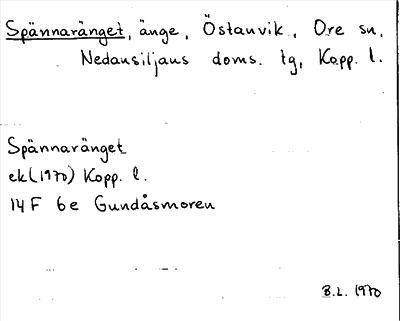 Spännaränget, änge, Östanvik, Ore sn,
Nedansiljans doms. tg, Kopp. l.
Spännaränget
ek(1970) Kopp. l.
14 F 6e Gundåsmoren
B.L. 1970